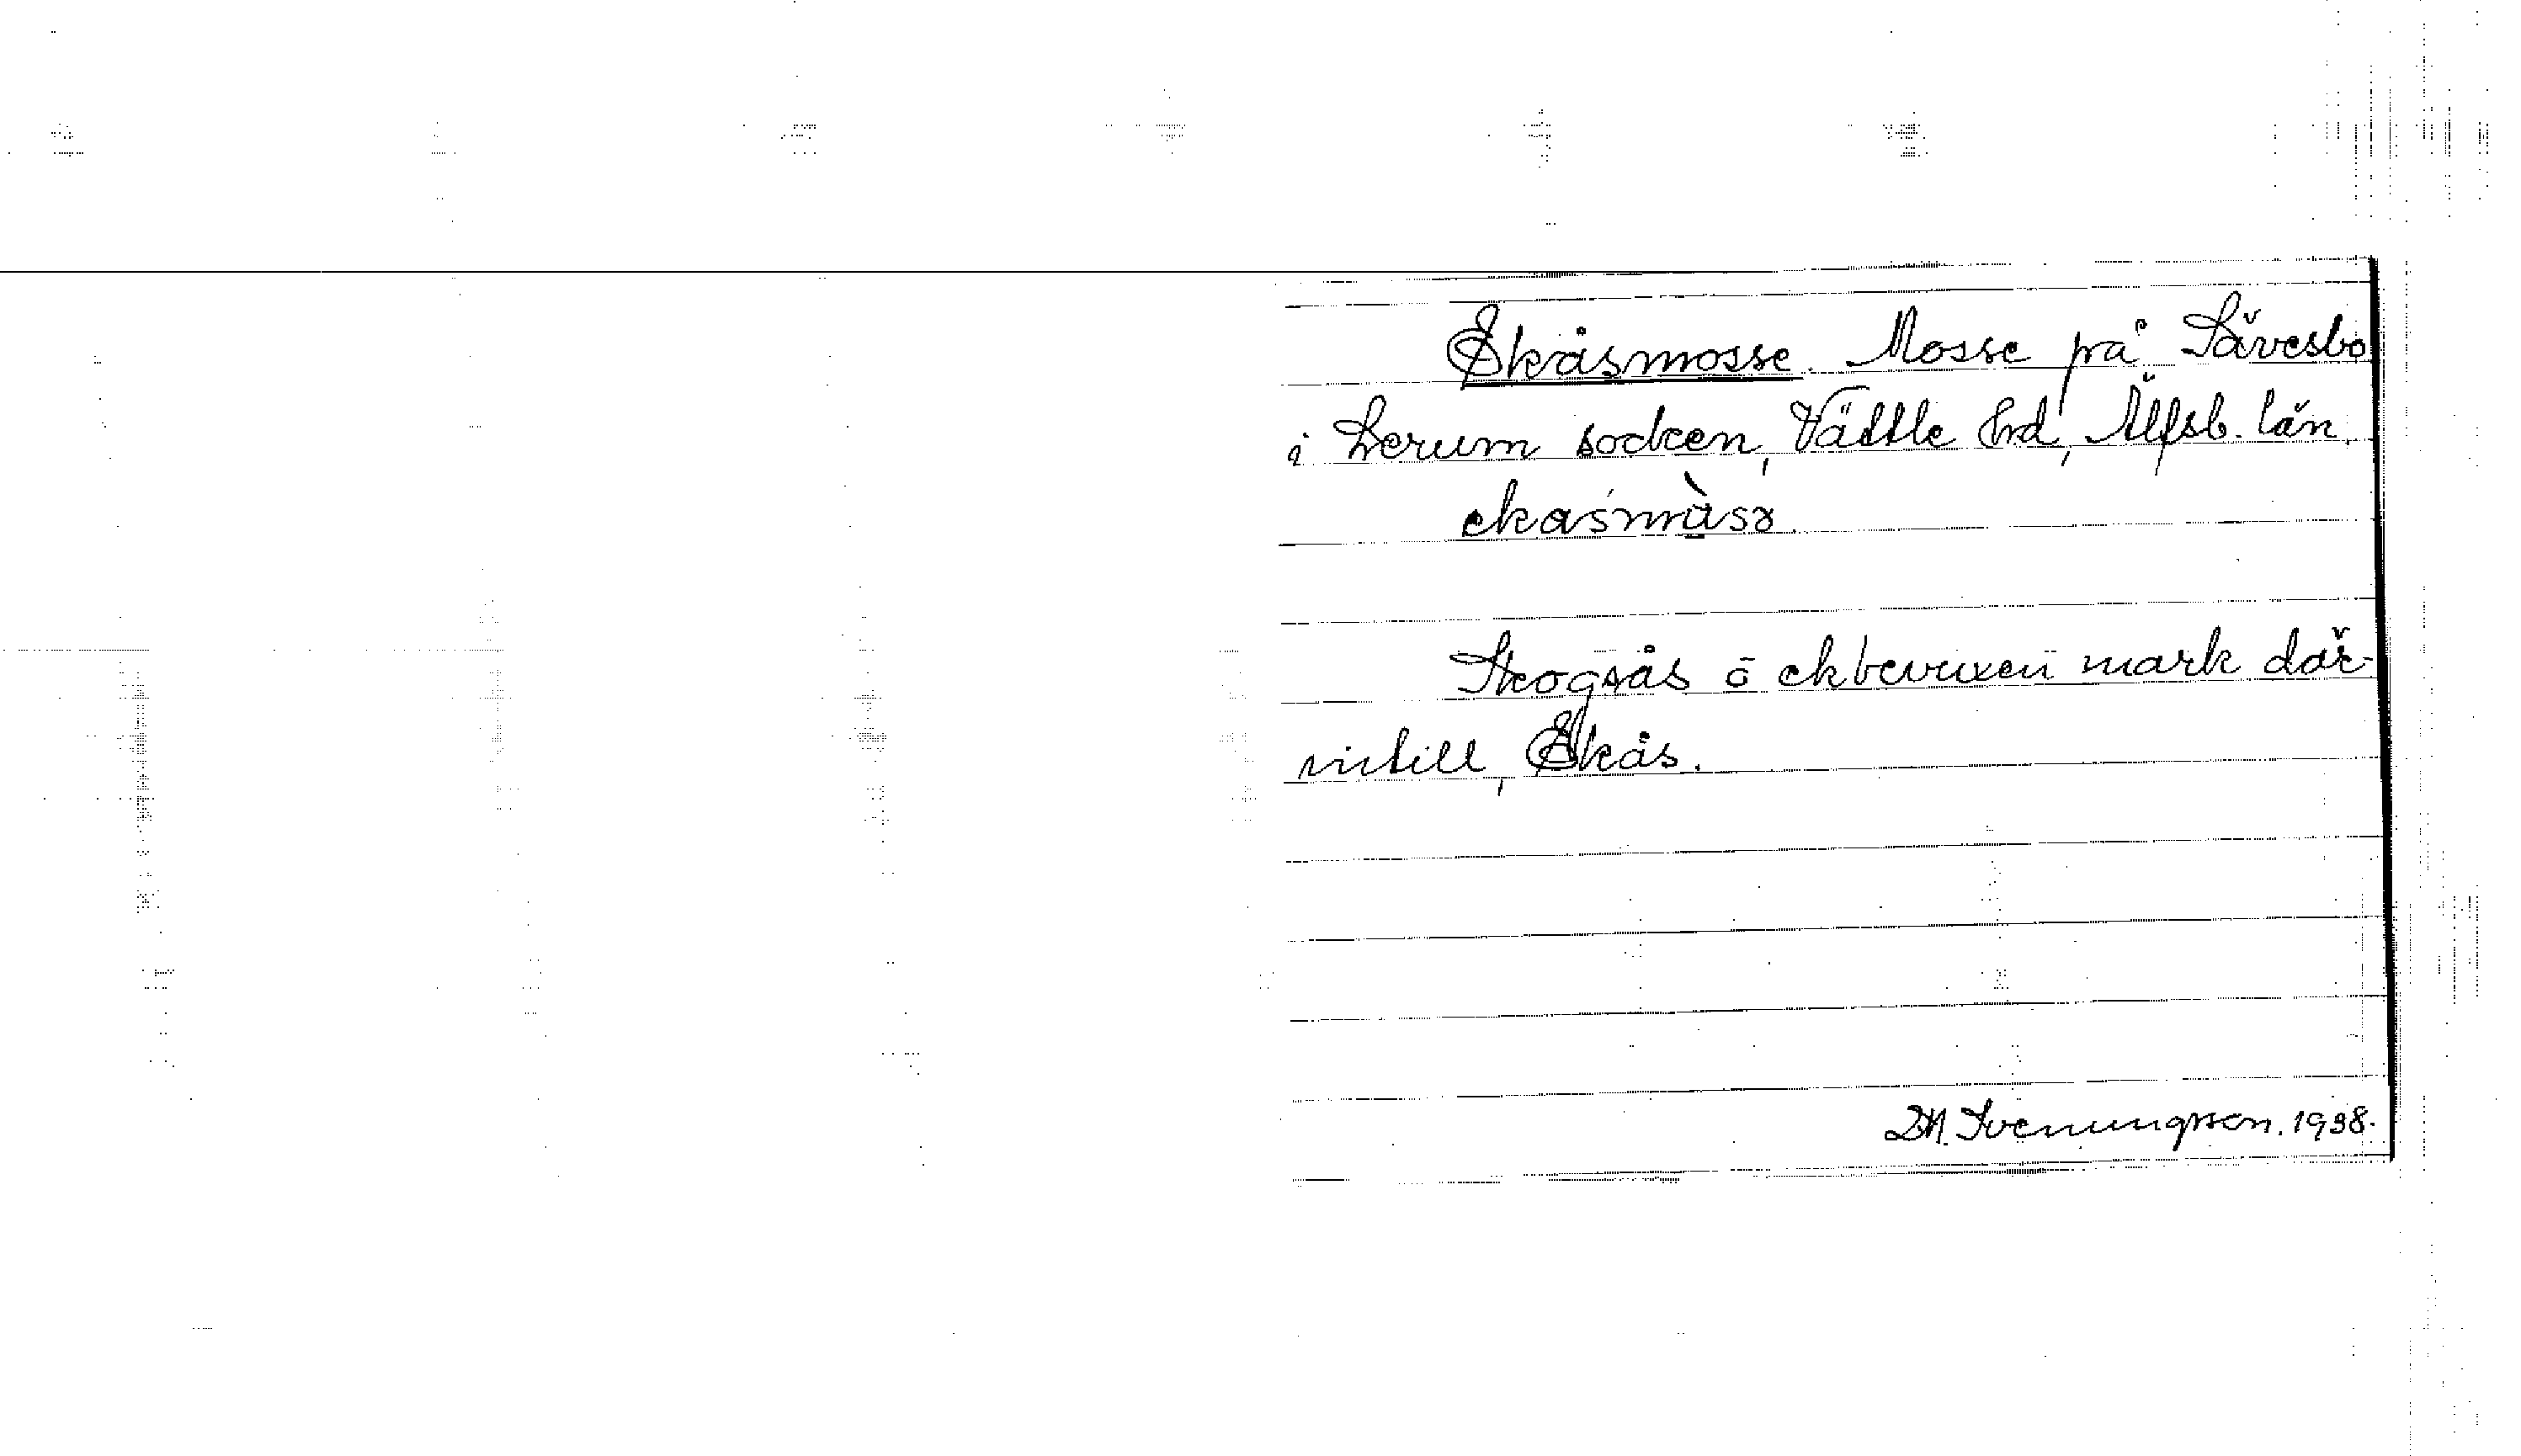 Ekåsmosse. Mosse på Sävesbo
i Lerum socken, Vättle hrd, Älfsb. län.
Skogsås o ekbevuxen mark där-
intill, Ekås.
D.A. Svenungsson. 1938.